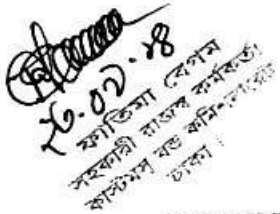 ২৮.০২.১৪
ফাতিমা বেগম
সহকারী রাজস্ব কর্মকর্তা
কাস্টমস বন্ড কমিশনারেট
ঢাকা।